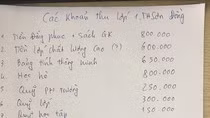 Các khoản thu lớp 1 TH Sơn Đồng
1 Tiền Đồng phục + Sách GK 800.000
2 Tiền lớp chất lượng cao (?) 600.000
3 Bảng tính thông minh 650.000
4 Học hè 800.000
5 Quỹ PH trường 250.000
6 Quỹ lớp 300.000
học tập 150.000